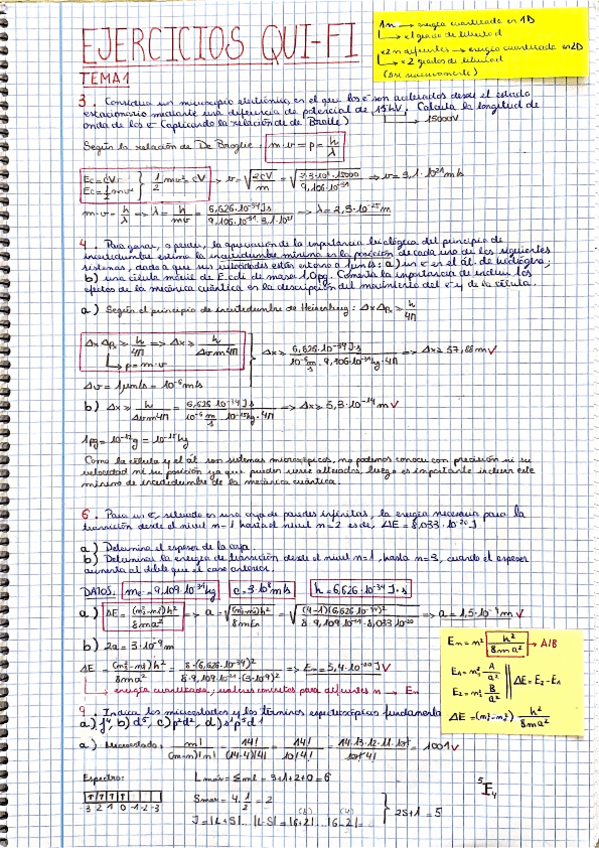 EJERCICIOS QUI-FI
1n → energía cuantizada en 1D
↳ x1 grado de libertad
x2 n diferentes → energía cuantizada en 2D
↳ x2 grados de libertad
(sucesivamente)
TEMA 1
3. Construya un microscopio electrónico en el que los e⁻ son acelerados desde el estado
estacionario mediante una diferencia de potencial de 15kV. Calcula la longitud de
onda de los e⁻ (aplicando la relación de De Broglie)
→ 15000V
Según la relación de De Broglie: m·v = p = h/λ
Ec = eV
Ec = 1/2 mv² } 1/2 mv² = eV → v = √(2eV/m) =
m·v = h/λ → λ = h/mv =
4. Para ganar, o perder, la apreciación de la importancia biológica del principio de
incertidumbre estima la incertidumbre mínima en la posición de cada uno de los siguientes
sistemas, dado que sus velocidades están entorno a 1μm/s: a) un e⁻ en el át. de hidrógeno;
b) una célula móvil de E. coli de masa 1,0pg. Comenta la importancia de incluir los
efectos de la mecánica cuántica en la descripción del movimiento del e⁻ y de la célula.
a) Según el principio de incertidumbre de Heisenberg: Δx Δpx ≥ h/4π
Δx Δpx ≥ h/4π → Δx ≥ h/Δv m 4π
↳ p = m·v
Δx ≥ 6,626·10⁻³⁴ J·s / 10⁻⁶ m/s · 9,106·10⁻³¹ kg · 4π → Δx ≥ 57,88 m ✓
Δv = 1μm/s = 10⁻⁶ m/s
b) Δx ≥ h/Δv m 4π = 6,626·10⁻³⁴ J·s / 10⁻⁶ m/s · 10⁻¹⁵ kg · 4π → Δx ≥ 5,3·10⁻¹⁴ m ✓
1pg = 10⁻¹² g = 10⁻¹⁵ kg
Como la célula y el át. son sistemas microscópicos, no podemos conocer con precisión ni su
velocidad ni su posición ya que pueden verse alteradas, luego es importante incluir este
mínimo de incertidumbre de la mecánica cuántica.
6. Para un e⁻, situado en una caja de paredes infinitas, la energía necesaria para la
transición desde el nivel n=1 hasta el nivel n=2 es de, ΔE = 8,033·10⁻²⁰ J
a) Determina el espesor de la caja
b) Determina la energía de transición desde el nivel n=1, hasta n=3, cuando el espesor
aumenta al doble que el caso anterior.
DATOS: c = 3·10⁸ m/s h = 6,626·10⁻³⁴ J·s
a) ΔE = (n₂²-n₁²)h²/8ma² → a = √((n₂²-n₁²)h²/8mEn) = → a = 1,5·10⁻⁹ m ✓
b) 2a = 3·10⁻⁹ m
ΔE = (n₂²-n₁²)h²/8ma² = 8·(6,626·10⁻³⁴)²/8·9,109·10⁻³¹·(3·10⁻⁹)² → En = 5,4·10⁻²⁰ J ✓
↳ energía cuantizada, valores concretos para diferentes n → En
En = n² h²/8ma² → A/B
E₁ = n₁² A/a²
E₂ = n₂² B/a²
ΔE = E₂ - E₁
ΔE = (n₂²-n₁²) h²/8ma²
9. Indica los microestados y los términos espectroscópicos fundamenta
a) f⁴, b) d⁵, c) p²d², d) s¹p⁵d¹
a) Microestado: m!/(m-n)!n! = 14!/(14-4)!4! = 14!/10!4! = 14·13·12·11·10!/10!4! = 1001 ✓
Espectro: Lmáx = Σml = 3+1+2+0 = 6
↑ ↑ ↑ ↑
-3 2 1 0 -1 -2 -3
Smax = 4·1/2 = 2
J = |L+S| ... |L-S| = |6+2| ... |6-2| =
(8) (4)
} 2S+1 = 5
⁵I₄